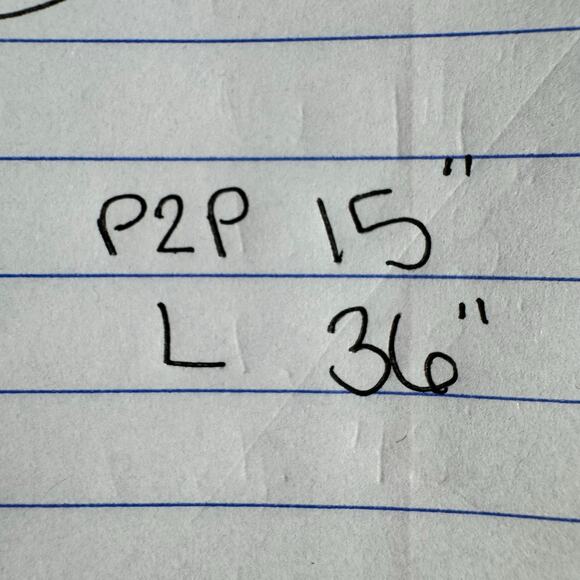 P2P 15"
L 36"